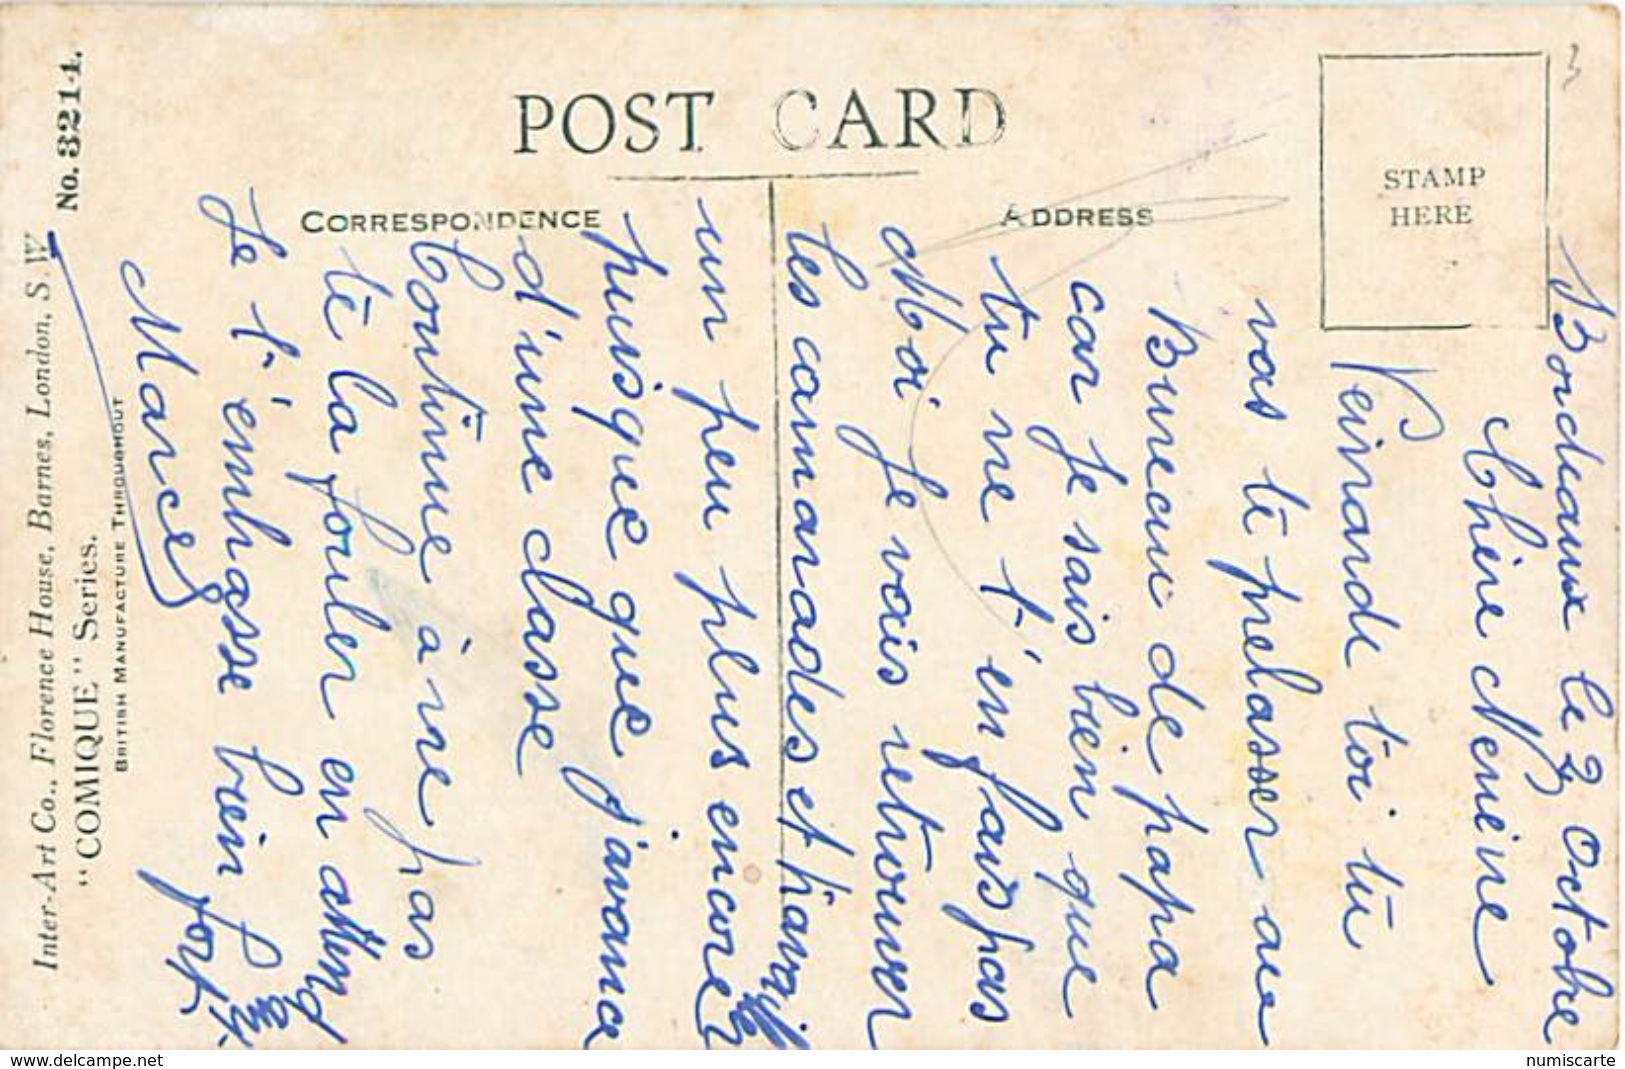 No. 3214.
POST CARD
CORRESPONDENCE
ADDRESS
STAMP
HERE
3
Inter-Art Co., Florence House, Barnes, London, S.W
"COMIQUE" Series.
BRITISH MANUFACTURE THROUGHOUT
Bordeaux le 2 octobre
Chère Neneine
Veinarde toi tu
vas te prelasser au
Bureau de papa
car je sais bien que
tu ne t'en fais pas
Moi je vais retrouver
les camarades et
un peu plus encore
puisque que j'avance
d'une classe
Continue à ne pas
te la fouler en attend
Je t'embrasse bien
fort
Marcel
www.delcampe.net
numiscarte